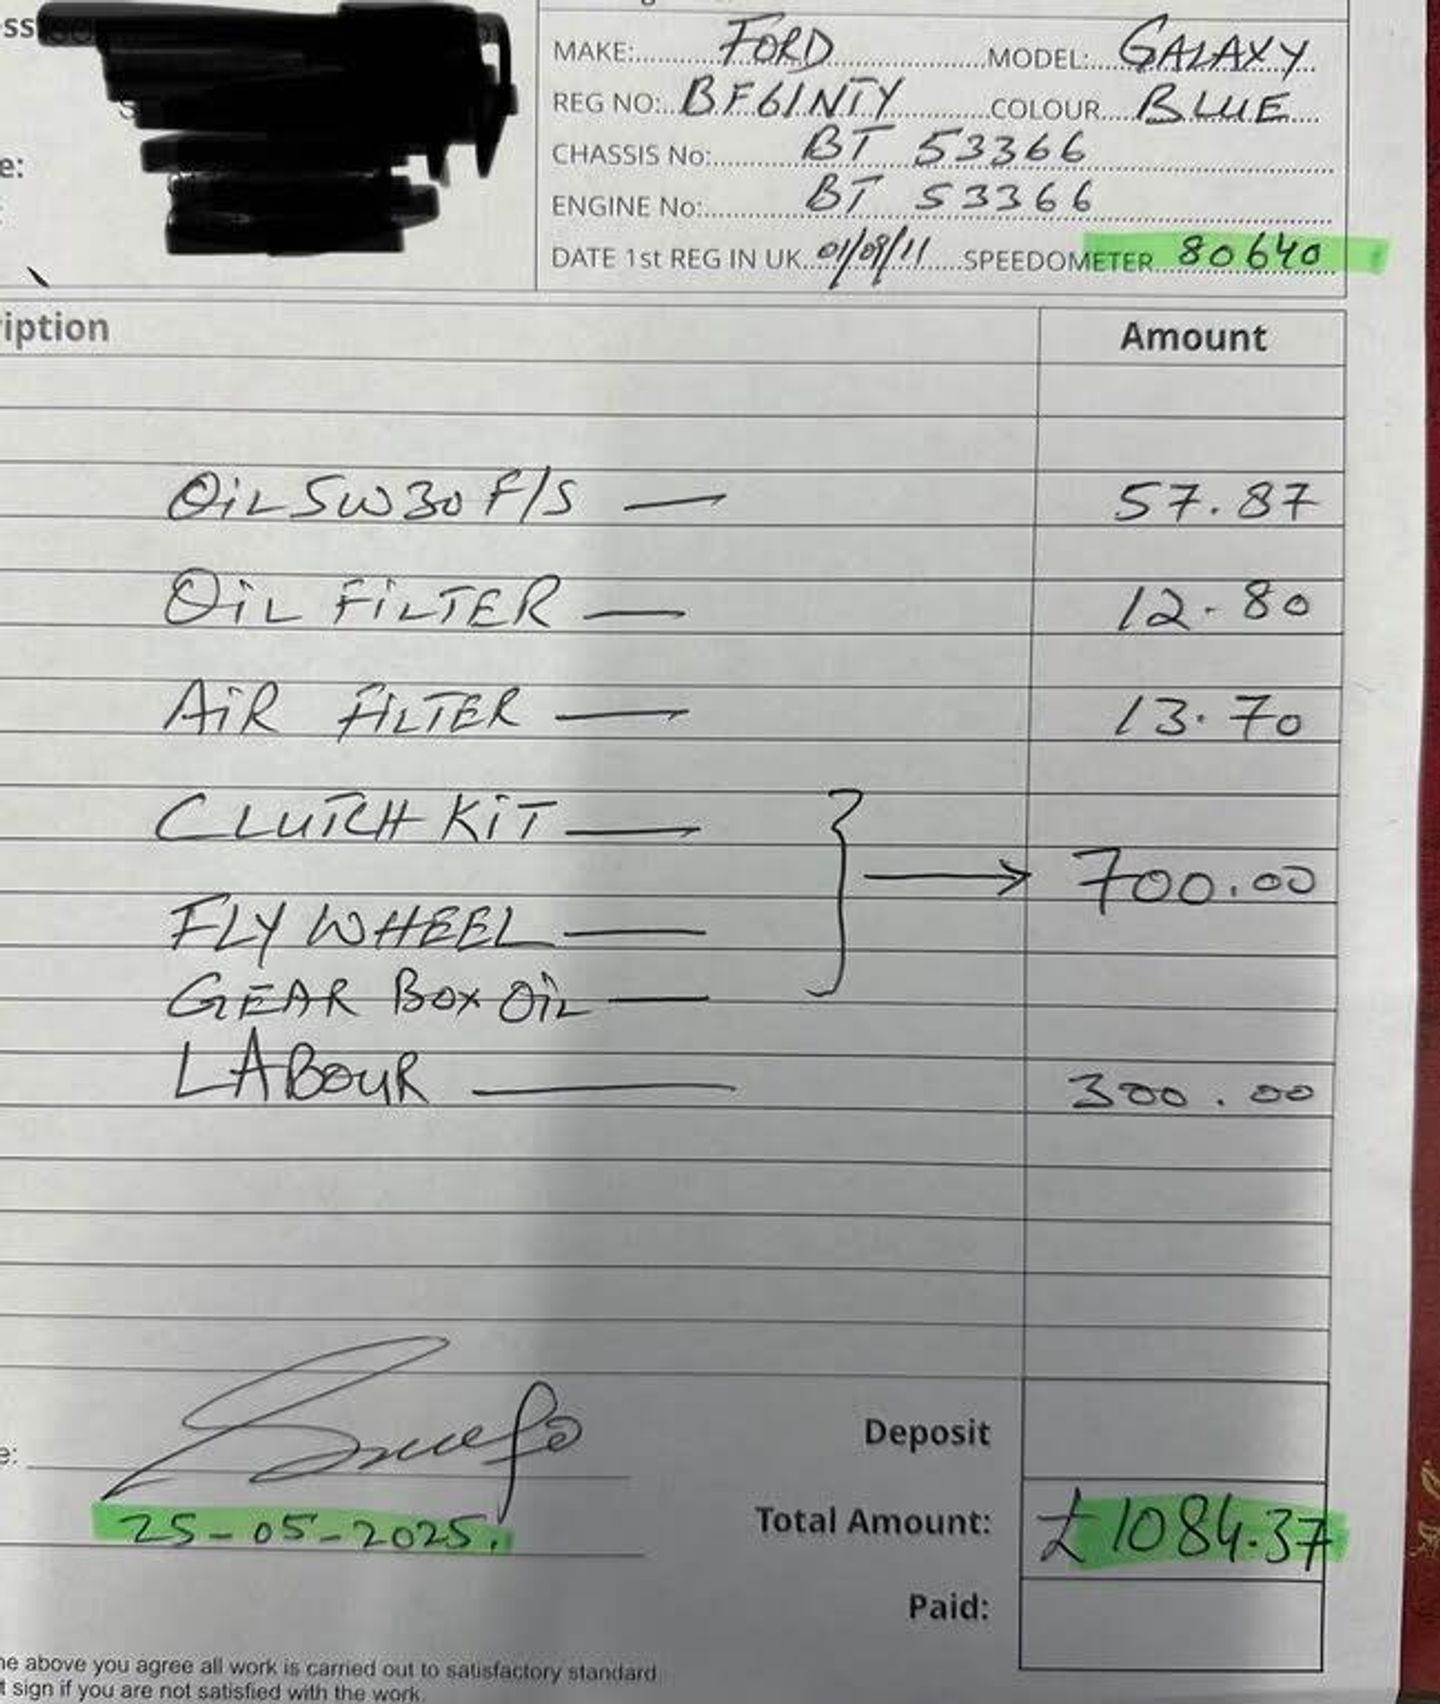 MAKE: FORD MODEL: GALAXY
REG NO: BF61NTY COLOUR BLUE
CHASSIS No: BT 53366
e:
ENGINE No: BT 53366
DATE 1st REG IN UK 01/09/11 SPEEDOMETER 80640
ription Amount
OiL 5W30 F/S — 57.87
OiL FiLTER — 12.80
AiR FiLTER — 13.70
CLUTCH KiT —
} → 700.00
FLY WHEEL —
GEAR BOX OiL —
LABOUR — 300.00
Deposit
e:
25-05-2025.
Total Amount: £1084.37
Paid:
he above you agree all work is carried out to satisfactory standard
t sign if you are not satisfied with the work.